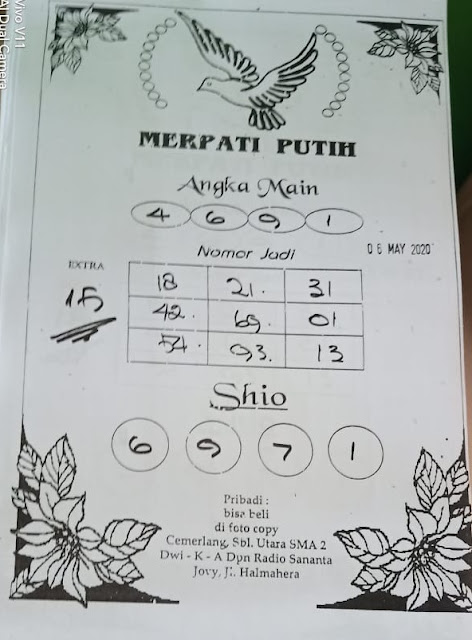 Vivo V11
AI Dual Camera
MERPATI PUTIH
Angka Main
4 6 9 1
Nomor Jadi
06 MAY 2020
EXTRA
15
18 21. 31
42. 69. 01
54. 93. 13
Shio
6 9 7 1
Pribadi :
bisa beli
di foto copy
Cemerlang, Sbl. Utara SMA 2
Dwi - K - A Dpn Radio Sananta
Jovy, Jl. Halmahera